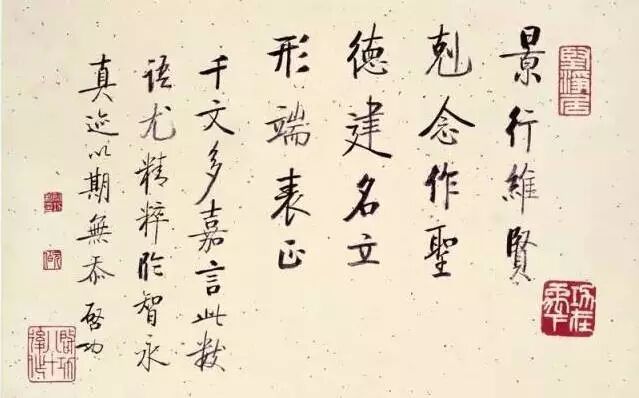 景行維賢
剋念作聖
德建名立
形端表正
千文多嘉言此數
語尤精粹臨智永
真迹以期無忝 啓功
堅淨居
功在禹下